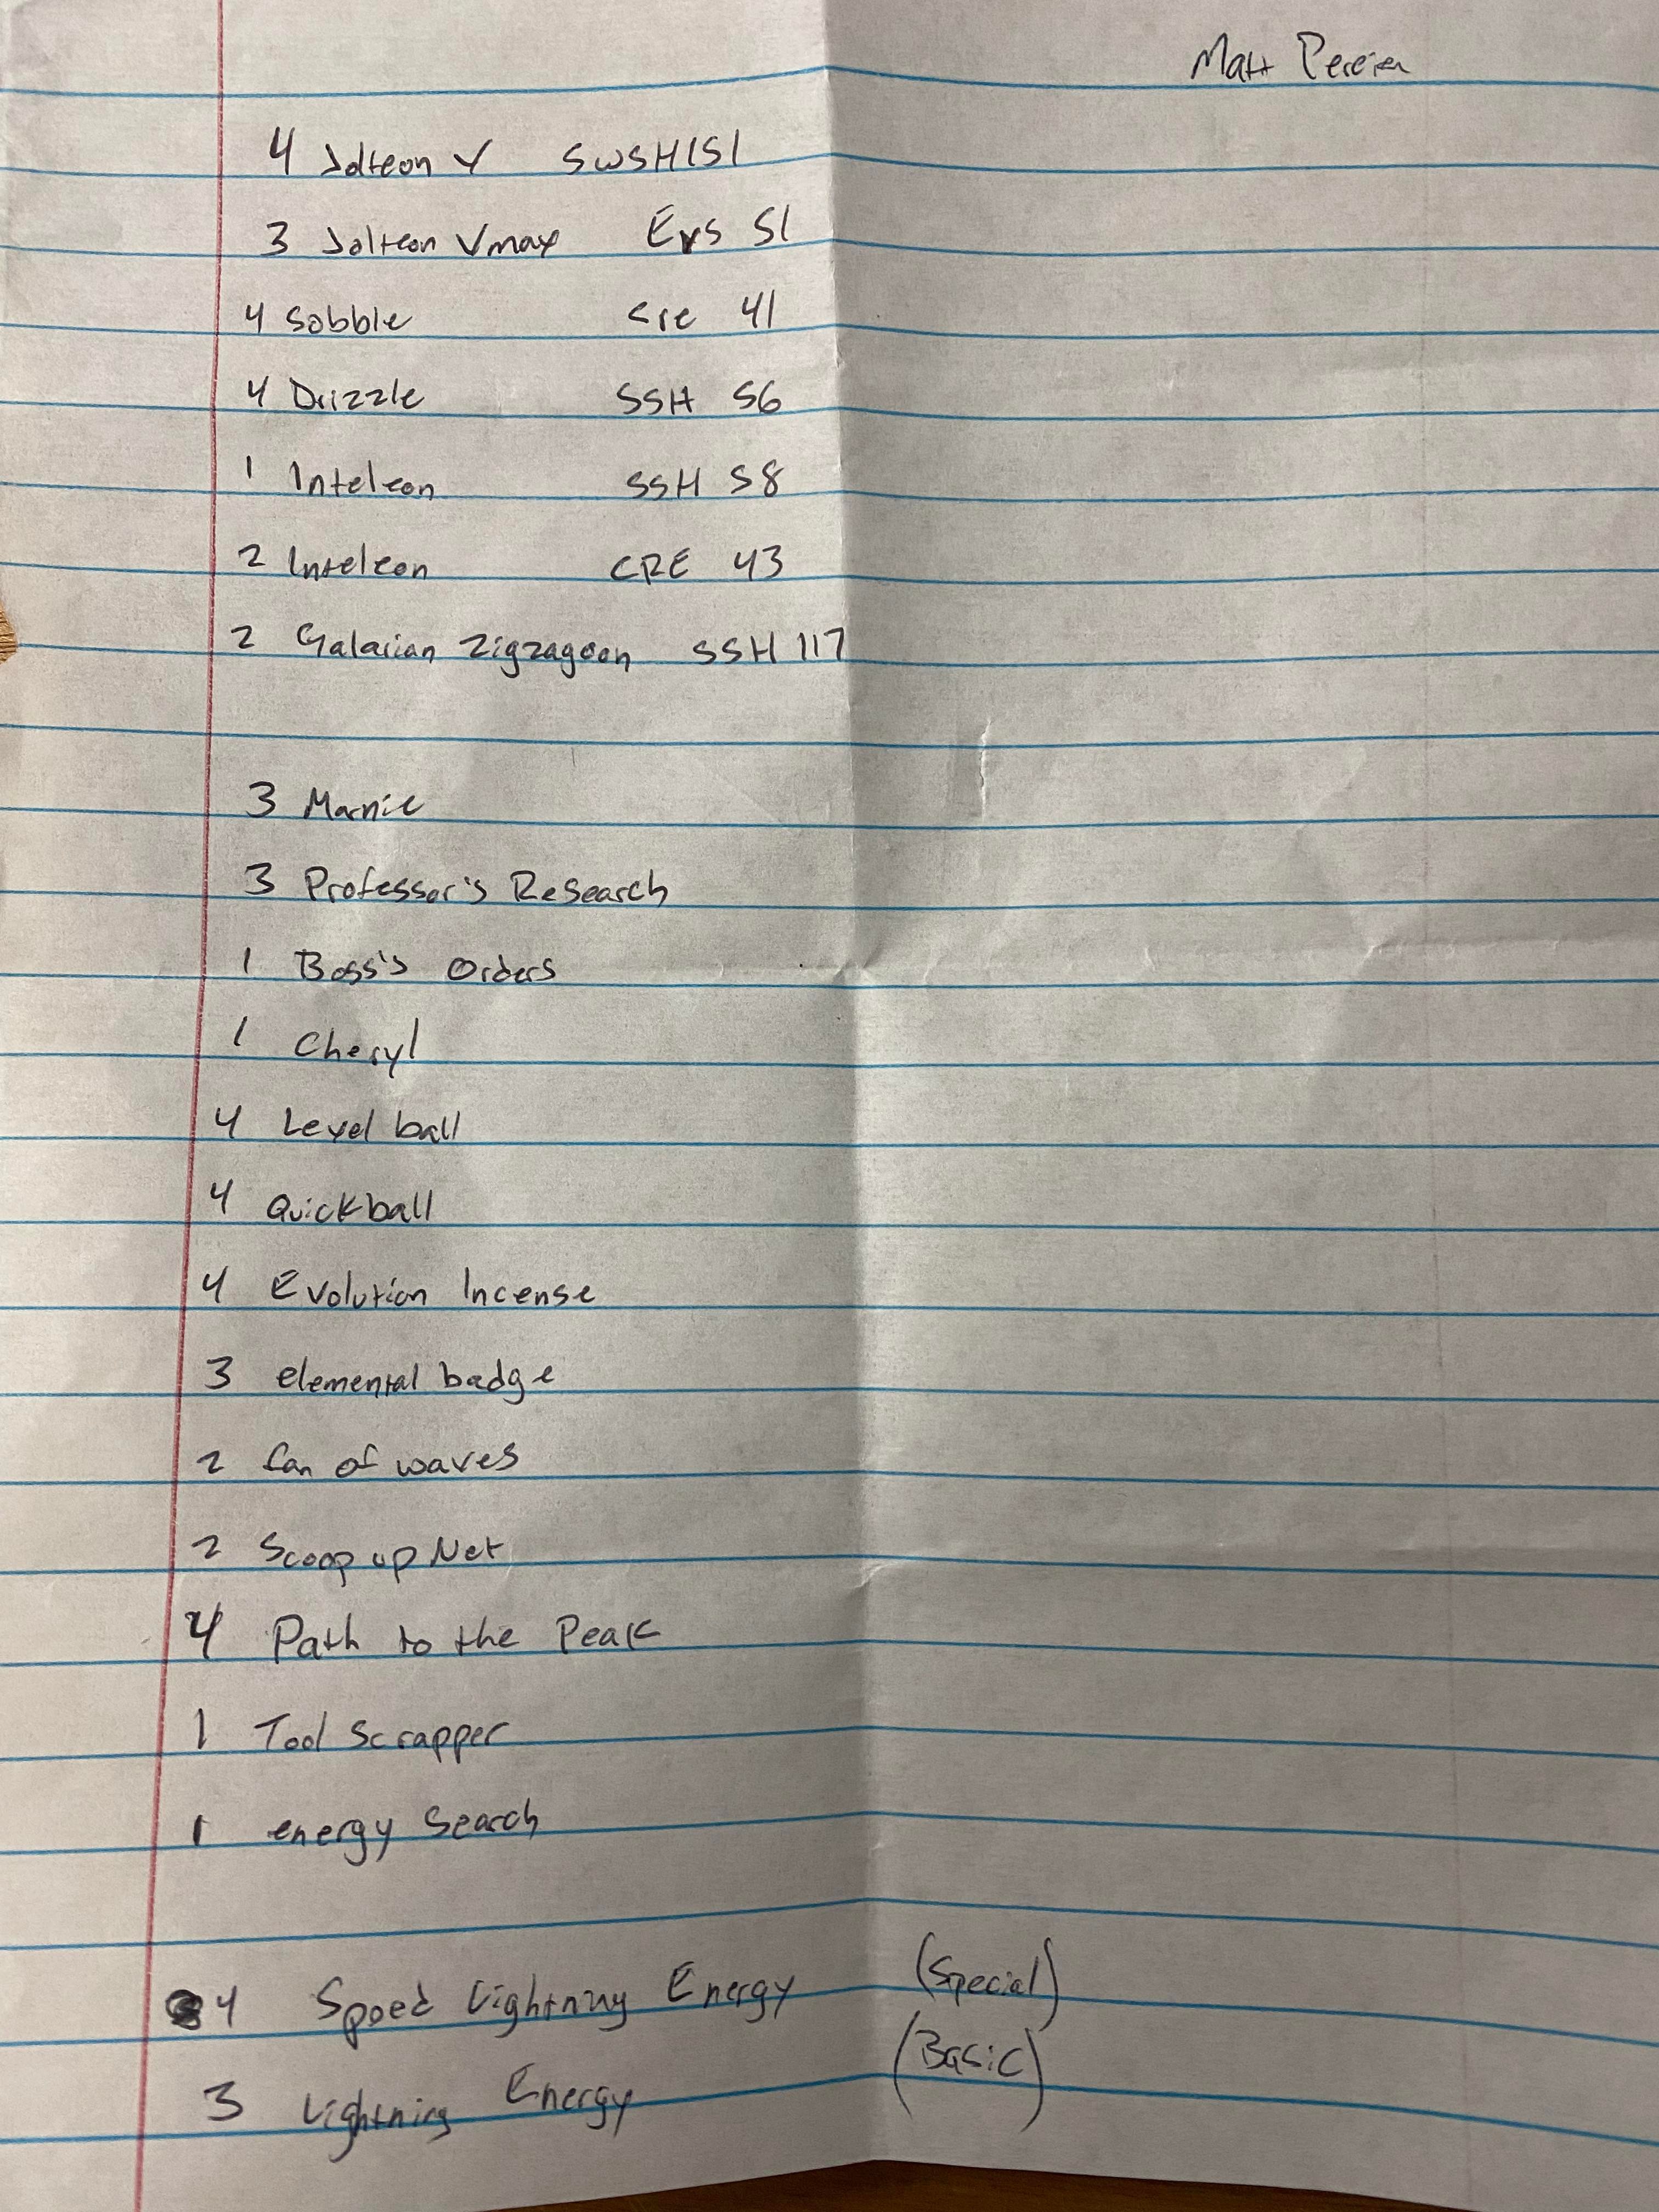 Matt Pereira
4 Jolteon V SWSH151
3 Jolteon Vmax Evs 51
4 Sobble Cre 41
4 Drizzle SSH 56
1 Inteleon SSH 58
2 Inteleon CRE 43
2 Galarian Zigzagoon SSH 117
3 Marnie
3 Professor's Research
1 Boss's Orders
1 Cheryl
4 Level ball
4 Quickball
4 Evolution Incense
3 elemental badge
2 fan of waves
2 Scoop up Net
4 Path to the Peak
1 Tool Scrapper
1 energy Search
4 Speed Lightning Energy (Special)
3 Lightning Energy (Basic)